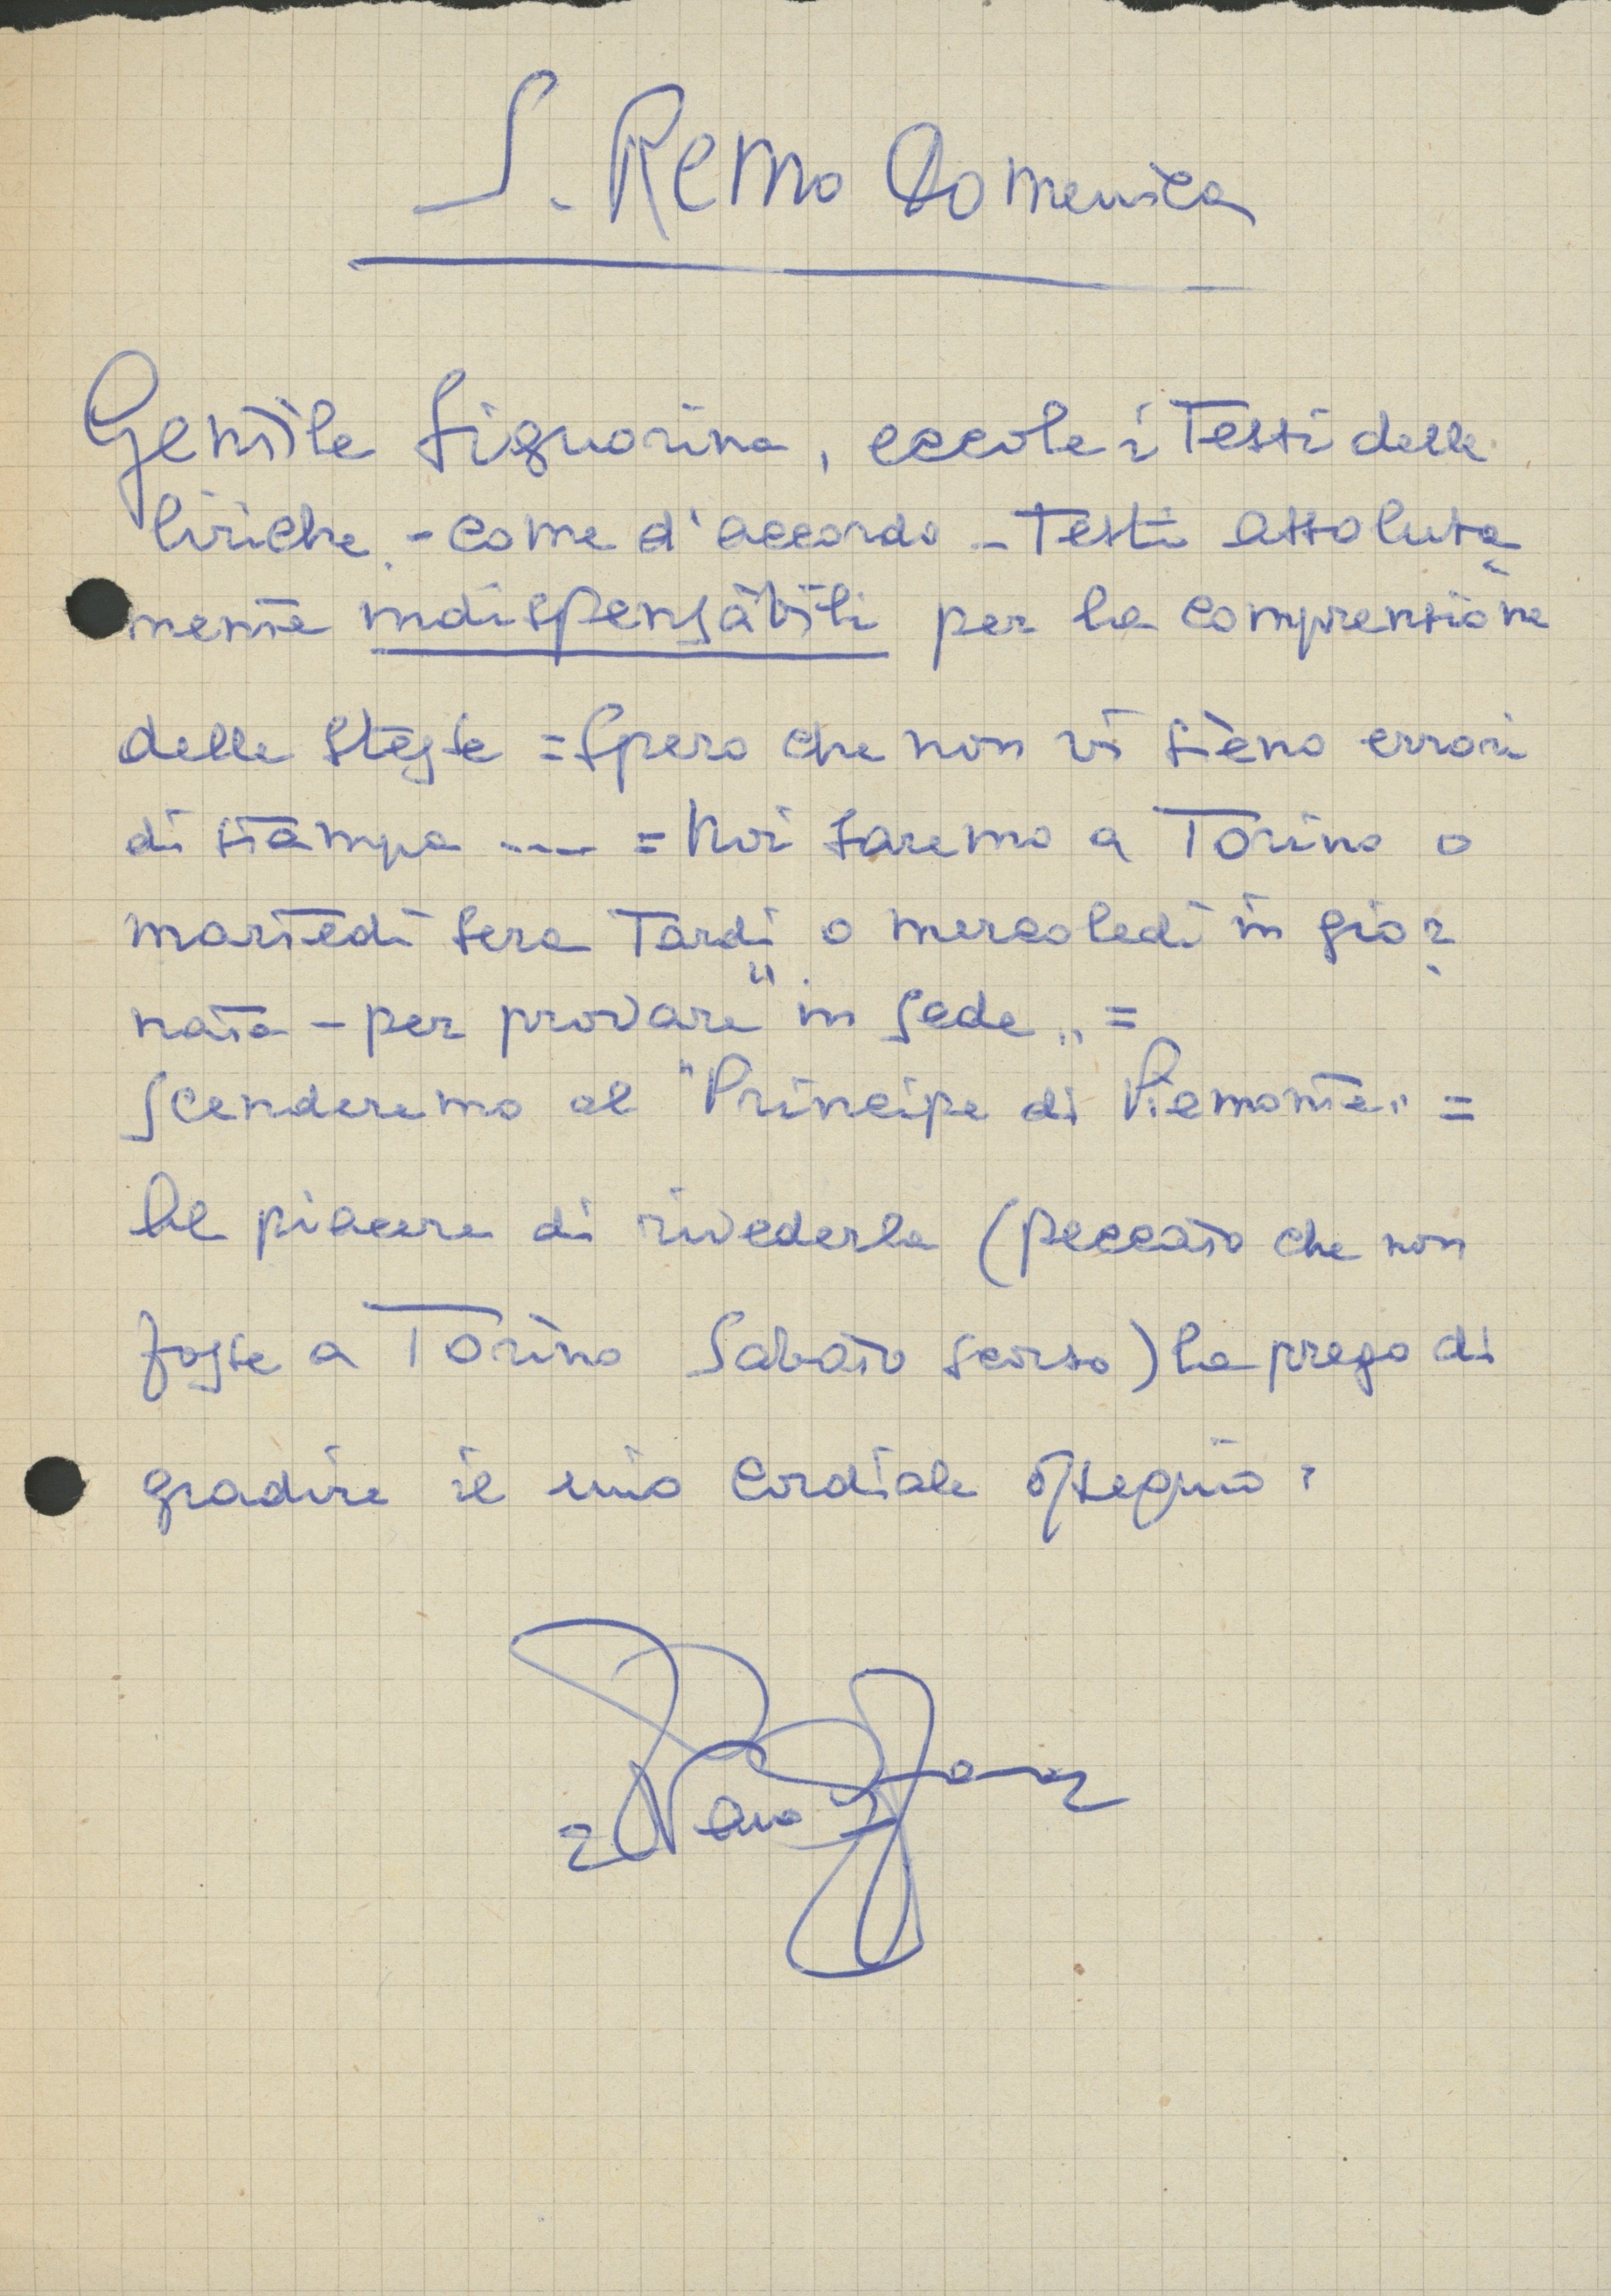 S. Remo Domenica
Gentile Signorina, eccole i Testi delle
liriche, - come d'accordo - Testi assoluta
mente indispensabili per la comprensione
delle stesse = Spero che non vi sieno errori
di stampa ---- = Noi saremo a Torino o
martedì sera Tardi o mercoledì in gior
nata - per provare "in sede" =
Scenderemo al "Principe di Piemonte" =
Al piacere di rivederla (peccato che non
fosse a Torino Sabato scorso) la prego di
gradire il mio cordiale ossequio: